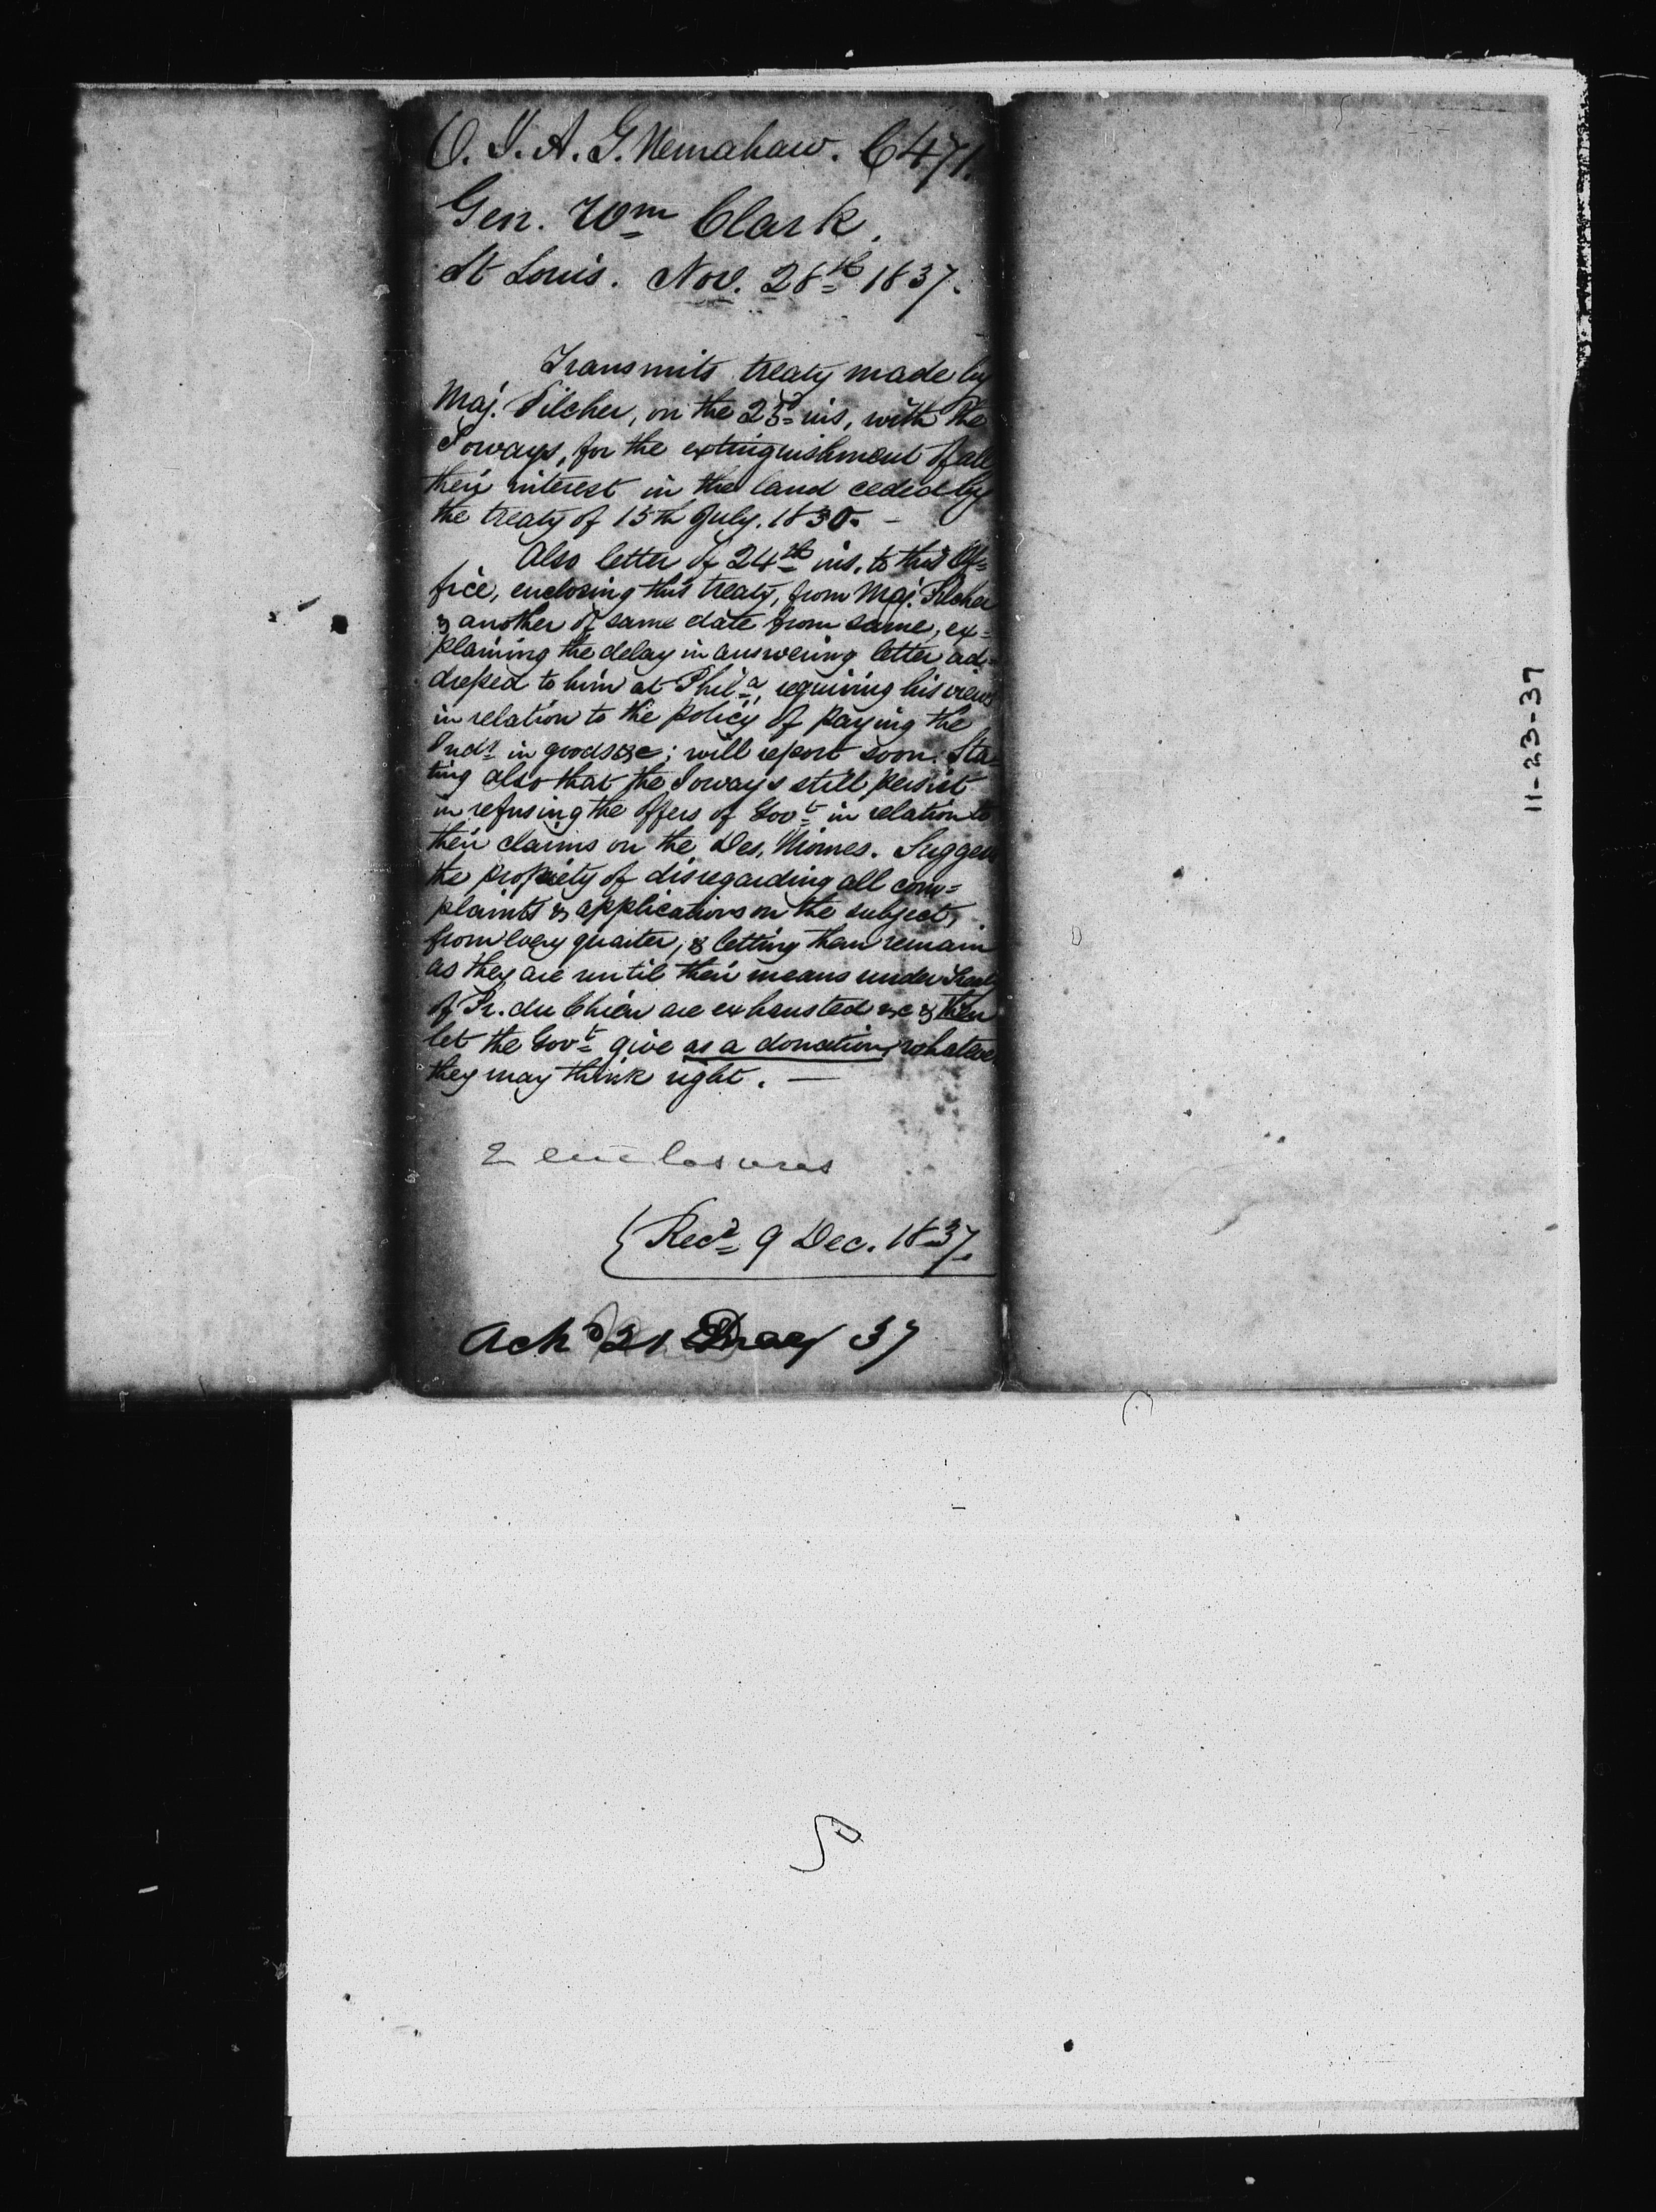 O. I. A. G. Nemahaw. C471.
Gen. Wm Clark.
St Louis. Nov. 28th 1837.
Transmits treaty made by
Maj. Pilcher, on the 23d ins, with the
Ioways, for the extinguishment of all
their interest in the land ceded by
the treaty of 15th July. 1830. -
Also letter of 24th ins. to this Of=
fice, enclosing this treaty, from Maj. Pilcher
& another of same date from same, ex=
plaining the delay in answering letter ad=
dressed to him at Phila, requiring his views
in relation to the policy of paying the
Inds in goods &c; will report soon. Sta=
ting also that the Ioways still persist
in refusing the offers of Govt in relation to
their claims on the Des. Moines. Suggests
the propriety of disregarding all com=
plaints & applications on the subject,
from every quarter, & letting them remain
as they are until their means under Treaty
of Pr. du Chien are exhausted &c & then
let the Govt give as a donation, whatever
they may think right. —
2 enclosures
Recd 9 Dec. 1837.
Ackd 21 37
11-23-37